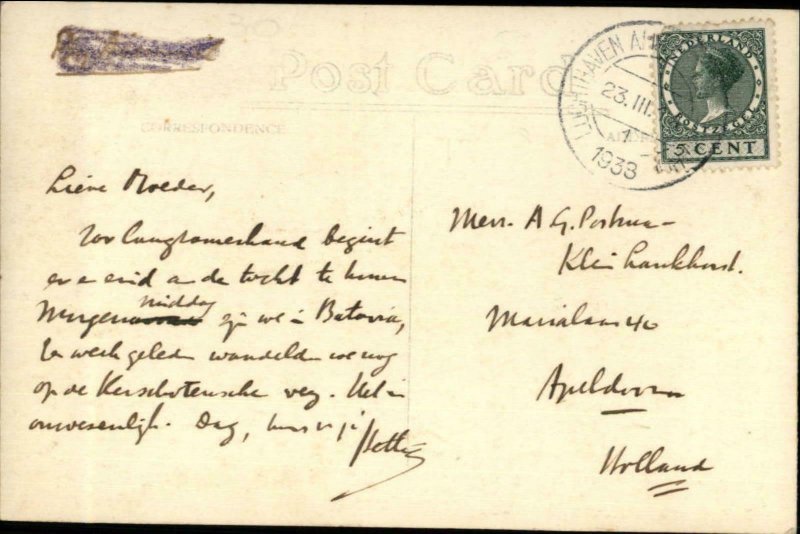 Post Card
CORRESPONDENCE
LUCHTHAVEN
23.III
1
1938
NEDERLAND
POSTZEGEL
5 CENT
Lieve Moeder,
Zoo langzamerhand begint
er e eind a de tocht te komen
Morgenmiddag zijn we i Batavia,
Een week geleden wandelden we nog
op de Kerschotensche weg. Het is
onwezenlijk. Dag,
Mevr. A G. Postma-
Klein Lankhorst.
Marialaan 40
Apeldoorn
Holland